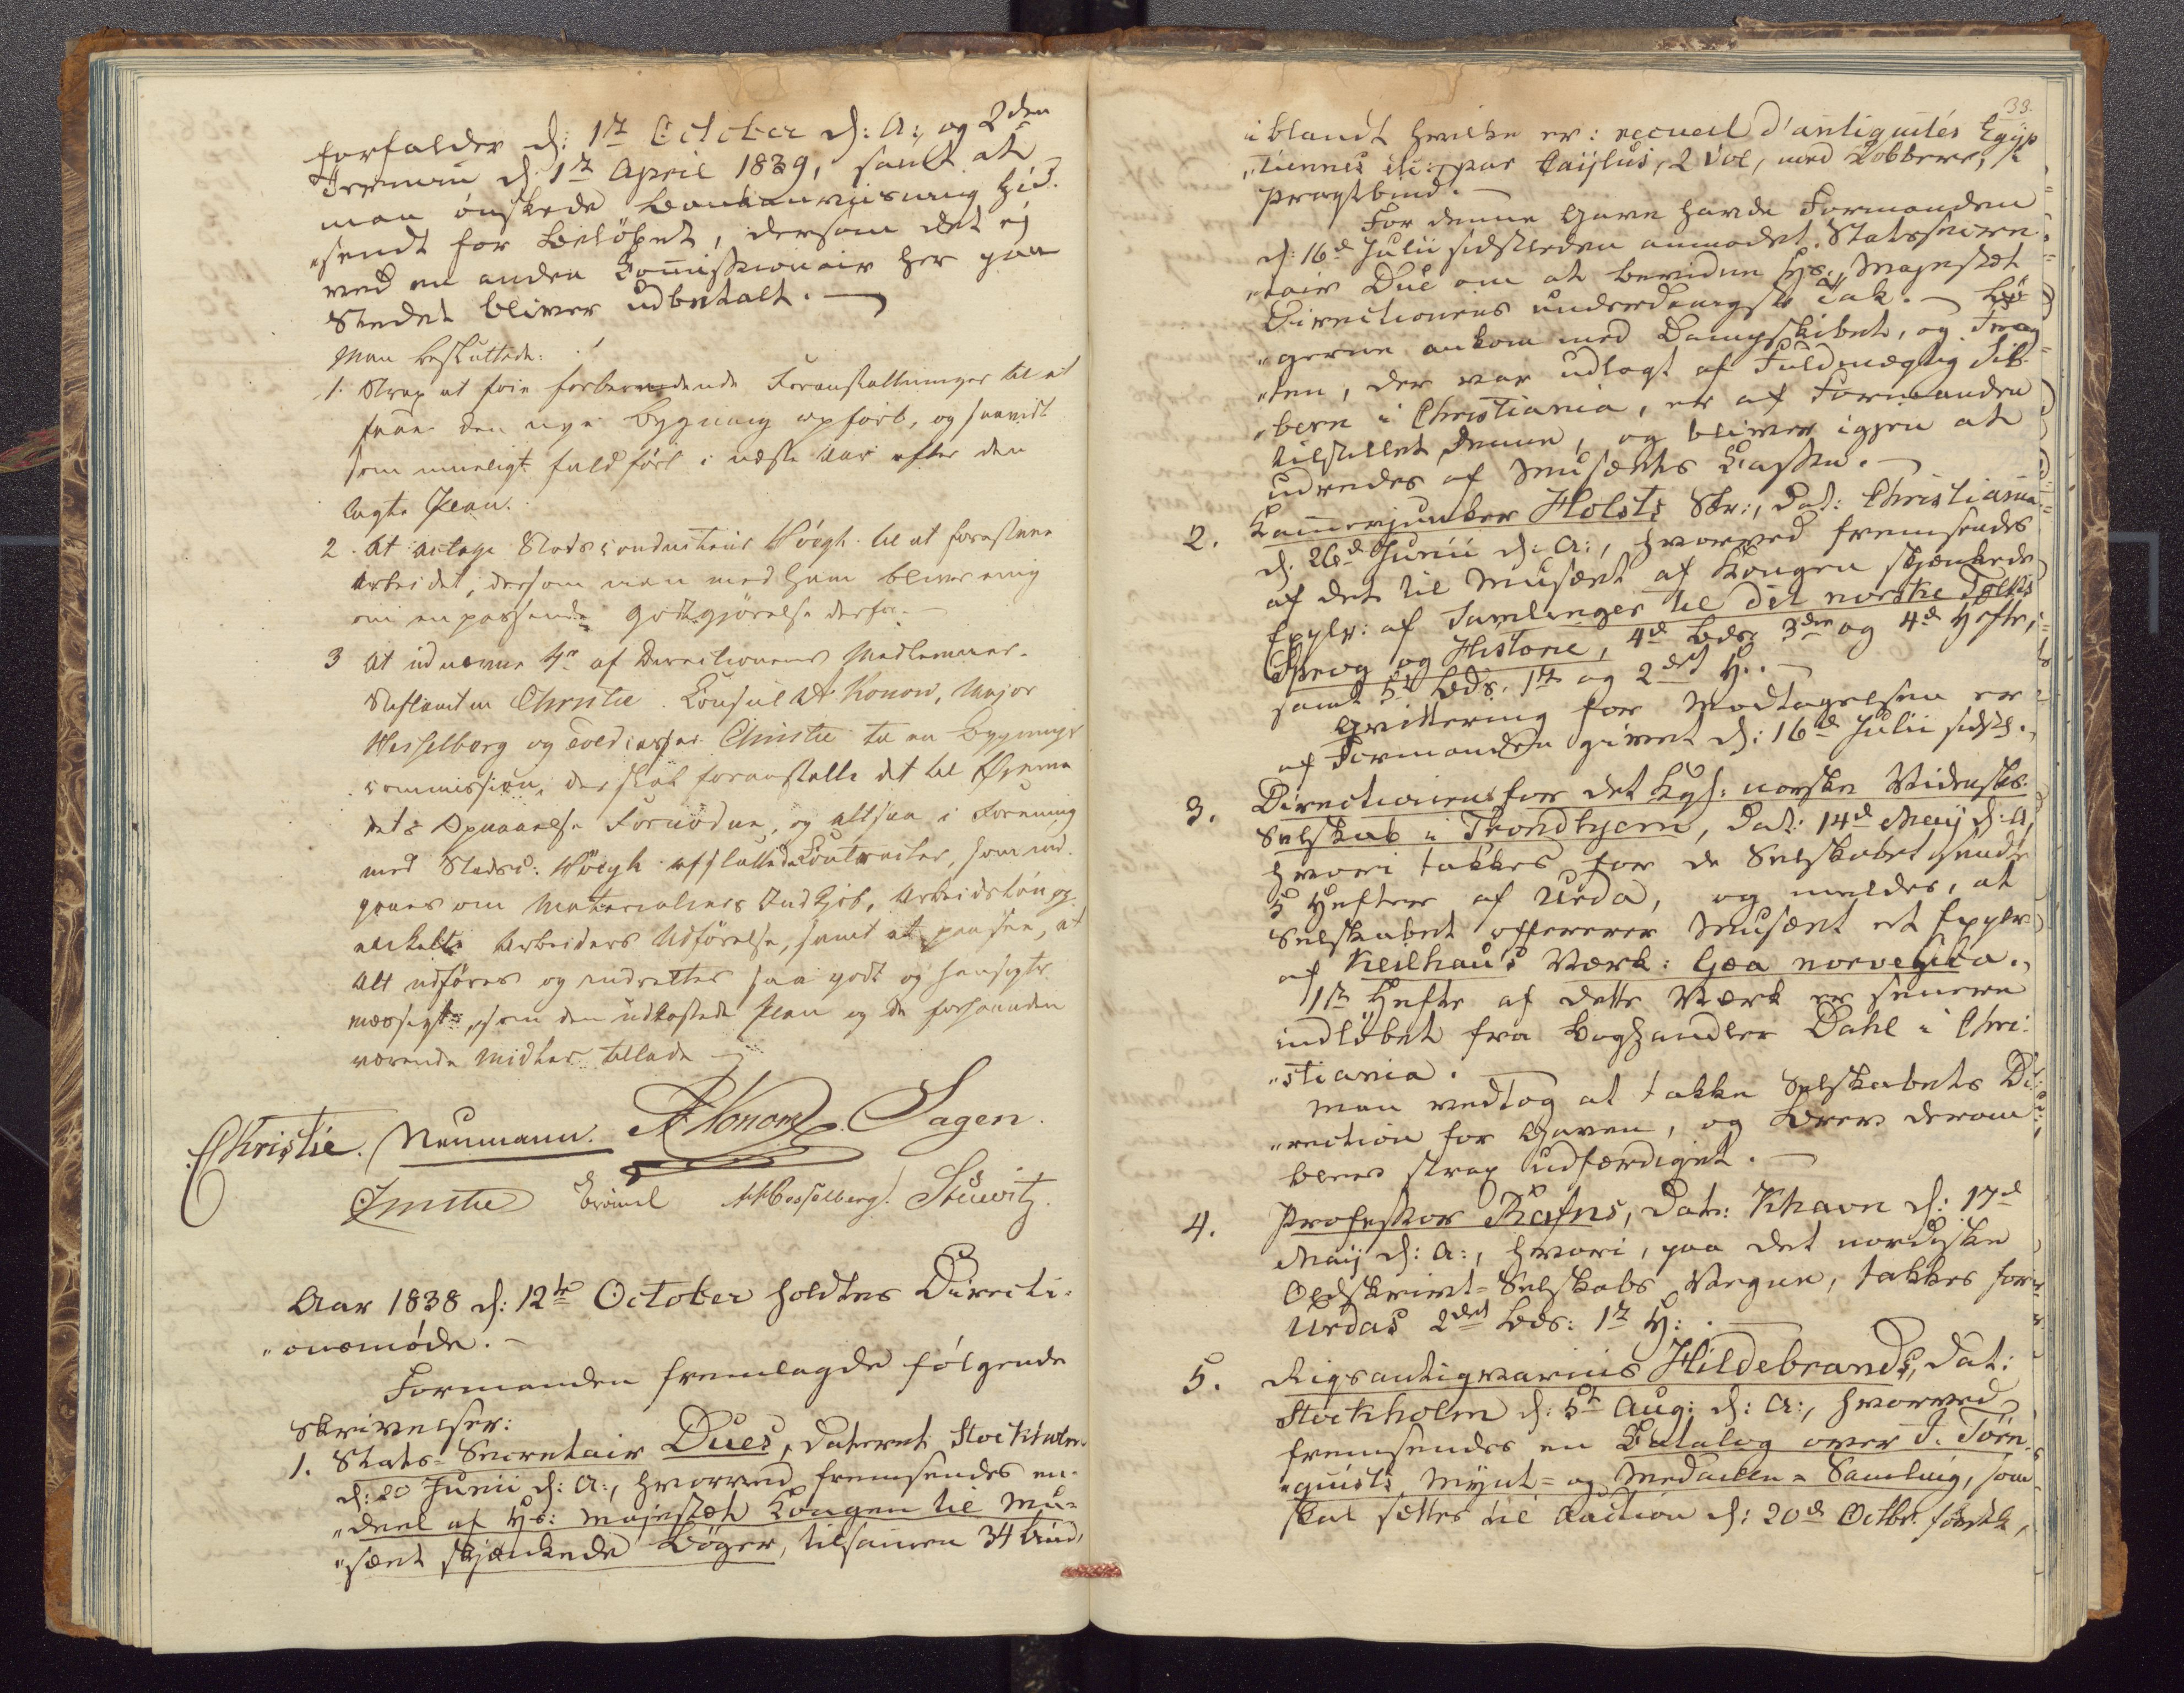 forfalder d: 1ste October d: A:, og 2den
Termin d. 1ste April 1839, samt at
man ønskede Bankanviisning hid-
„sendt for Beløbet, dersom det ej
ved en anden Commissionair her paa
Stedet bliver udbetalt. —
Man besluttede:
1. Strax at føie forberedende Foranstaltninger til at
faae den nye Bygning opført, og saavidt
som mueligt fuldført i næste Aar efter den
lagte Plan.
2. At antage Stadsconducteur Høegh til at forestaae
Arbeidet, dersom man med ham bliver enig
om en passende Godtgjørelse derfor. —
3 At udnævne 4re af Directionens Medlemmer.
Stiftamtm Christie. Consul A. Konow, Major
Hesselberg og Toldcasserer Christie til en Bygnings
commission, der skal foranstalte det til Øieme
dets Opnaaelse Fornødne, og altsaa i Forening
med Stadsc: Høegh afslutte de Contracter, som ind
gaaes om Materialiers Indkjøb, Arbeidsløn og
enkelte Arbeiders Udførelse, samt at paasee, at
Alt udføres og indrettes saa godt og hensigts
mæssigt, som den udkastede Plan og de forhaanden
værende Midler tillade —
Christie. Neumann. A Konow. Sagen.
Christie Hesselberg. Stuwitz.
Aar 1838 d: 12te October holdtes Directi-
„onsmøde. —
Formanden fremlagde følgende
Skrivelser:
1. Stats-Secretair Dues, dateret Stockholm
d: 20 Junii d: A:, hvorved fremsendes en
„deel af Hs: Majestæt Kongen til Mu-
„sæet skjænkede Bøger, tilsammen 34 Bind,
33.
iblandt hvilke er: recueil d'antiquités Egyp
„tiennes etc: par Caylus, 2 Vol, med Kobbere, i
Pragtbind. —
For denne Gave havde Formanden
d: 16de Julii sidstleden anmodet Statssecre-
„tair Due om at bevidne Hs: Majestæt
Directionens underdanigste Tak. — Bø-
„gerne ankom med Dampskibet, og Frag
„ten, der var udlagt af Fuldmægtig Sib-
„bern i Christiania, er af Formanden
tilstillet denne, og bliver igjen at
udredes af Musæets Casse. —
2. Kammerjunker Holsts Skr:, dat: Christiania
d. 26de Junii d: A:, hvorved fremsendes
af det til Musæet af Kongen skjænkede
Explr: af Samlinger til det norske Folks
Sprog og Historie, 4de Bds 3die og 4de Hefte,
samt 5te Bds. 1ste og 2det H. —
Qvittering for Modtagelsen er
af Formanden givet d: 16de Julii sidstl.
3. Directionens for det Kgl: norske Vidensk.
Selskab i Trondhjem, dat: 14de Maij d: A,
hvori takkes for de Selskabet sendte
5 Hefter af Urda, og meldes, at
Selskabet offererer Musæet et Explr
af Keilhau's Værk: Gæa norvegica.
1ste Hefte af dette Værk er senere
indløbet fra Boghandler Dahl i Chri-
„stiania.
Man vedtog at takke Selskabets Di-
„rection for Gaven, og Brev derom
blev strax udfærdiget. —
4. Professor Rafns, dat: Khavn d: 17de
Maij d: A:, hvori, paa det nordiske
Oldskrivt-Selskabs Vegne, takkes for
Urdas 2det Bds: 1ste H: —
5. Rigsantiqvarius Hildebrands, dat:
Stockholm d: 5te Aug: d: A:, hvorved
fremsendes en Catalog over J. Törn-
„quists Mynt- og Medaille-Samling, som
skal sættes til Auction d: 20de Octbr. førstk,